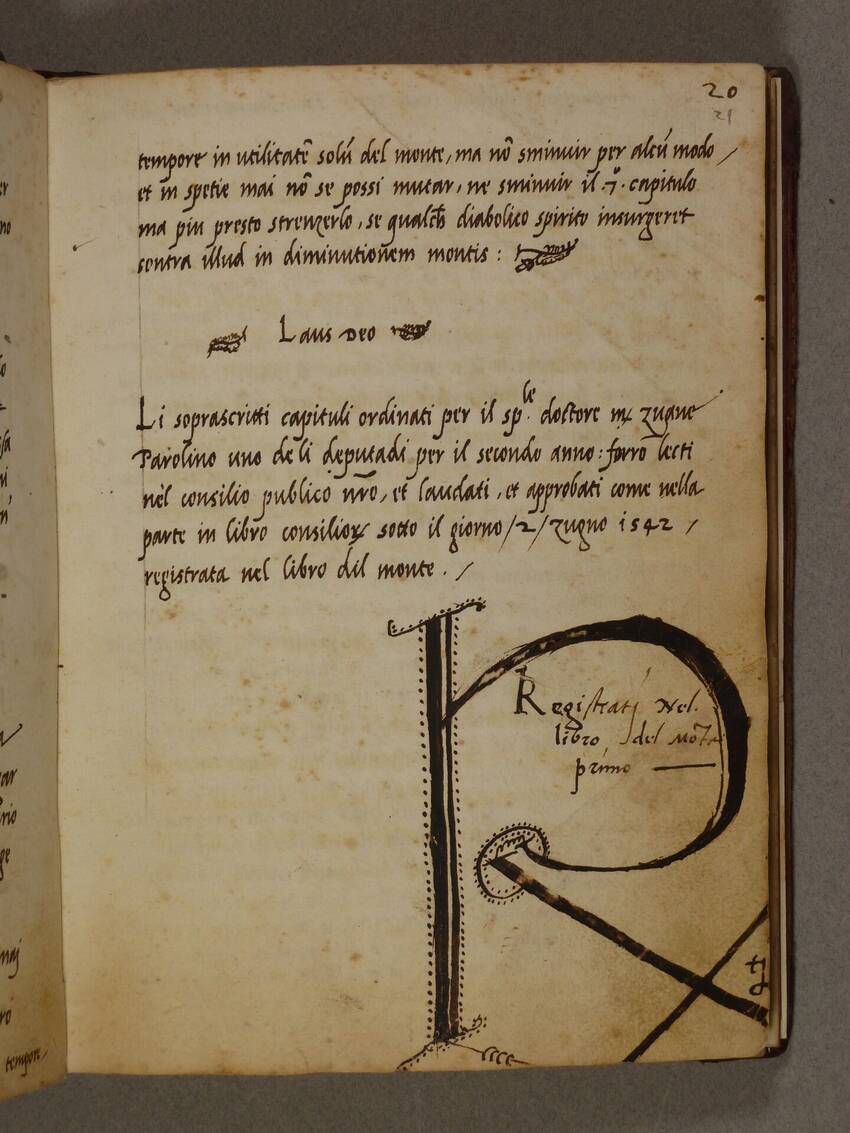 20
21
tempore in utilitatē solū del monte, ma nō sminuir per alcū modo /
et in spetie mai nō se possi mutar, ne sminuir il .7º. capitulo
ma piu presto strenzerlo, se qualch diabolico spirito insurgeret
contra illud in diminutionem montis :
Laus Deo
Li soprascritti capituli ordinati per il sp.le doctore mx zuane
Parolino uno de li deputadi per il secondo anno : forrō lecti
nel consilio publico nr̄o, et laudati, et approbati come nella
parte in libro consiliox sotto il giorno /2/ zugno 1542 /
registrata nel libro dil monte . /
R
Registrati Nel
libro del Mōte
primo
tempore